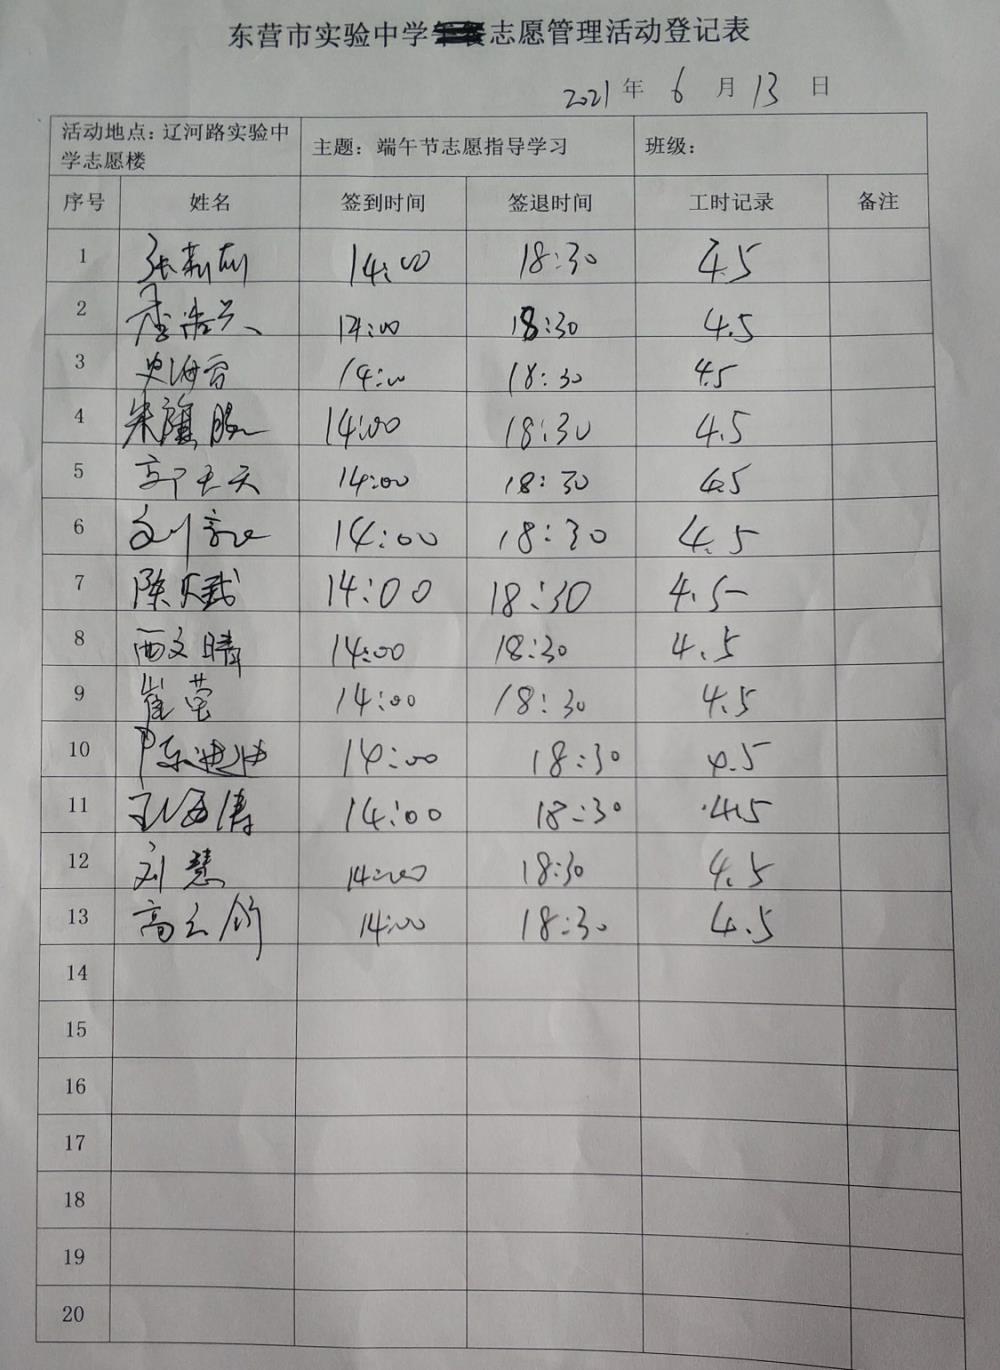 东营市实验中学志愿管理活动登记表
2021 年 6 月 13 日
活动地点：辽河路实验中学志愿楼 主题：端午节志愿指导学习 班级：
序号 姓名 签到时间 签退时间 工时记录 备注
1 张莉莉 14:00 18:30 4.5
2 14:00 18:30 4.5
3 史海容 14:00 18:30 4.5
4 朱 14:00 18:30 4.5
5 郭天天 14:00 18:30 4.5
6 刘 14:00 18:30 4.5
7 陈 14:00 18:30 4.5
8 西文晴 14:00 18:30 4.5
9 崔莹 14:00 18:30 4.5
10 陈迪迪 14:00 18:30 4.5
11 孔海涛 14:00 18:30 4.5
12 刘慧 14:00 18:30 4.5
13 高 14:00 18:30 4.5
14
15
16
17
18
19
20